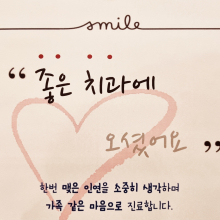 smile
“ 좋은 치과에
오셨어요 ”
한번 맺은 인연을 소중히 생각하며
가족 같은 마음으로 진료합니다.